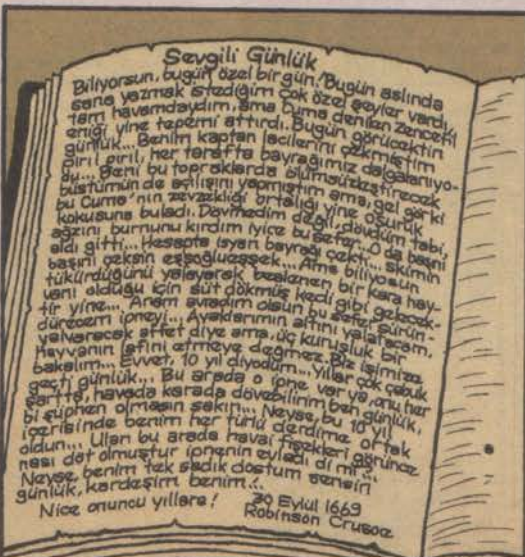 Sevgili Günlük
Biliyorsun, bugün özel bir gün. Bugün aslında
sana yazmak istediğim çok özel şeyler vardı,
tam havamdaydım, ama Cuma denilen zencefil
eniği yine tepemi attırdı. Bugün görücektin
günlük... Benim kaptan lacilerini çekmiştim
pırıl pırıl, her tarafta bayrağımız dalgalanıyo-
du... Beni bu topraklarda ölümsüzleştirecek
büstümün de açılışını yapmıştım ama, gel gör ki
bu Cuma'nın zevzekliği ortalığı yine osuruk
kokusuna buladı. Dövmedim değil, dövdüm tabi,
ağzını burnunu kırdım iyice bu sefer... O da başını
aldı gitti... Hesapta isyan bayrağı çekti... skimin
başını çeksin eşşoğlueşşek... Ama biliyosun
tükürdüğünü yalayarak beslenen bir kara hay-
vanı olduğu için süt dökmüş kedi gibi gelecek-
tir yine... Anam avradım olsun bu sefer sürün-
dürecem ipneyi... Ayaklarımın altını yalatacam,
yalvaracak affet diye ama, üç kuruşluk bir
hayvanın lafını etmeye değmez. Biz işimize
bakalım... Evvet, 10 yıl diyodum... yıllar çok çabuk
geçti günlük... Bu arada o ipne var ya, onu her
şartta, havada karada dövebilirim beh günlük,
bi şüphen olmasın sakın... Neyse, bu 10 yıl
içerisinde benim her türlü derdime ortak
oldun... Ulan bu arada havai fişekleri görünce
nası döt olmuştur ipnenin evladı di mi?..
Neyse, benim tek sadık dostum sensin
günlük, kardeşim benim...
Nice onuncu yıllara!
30 Eylül 1669
Robinson Crusoe